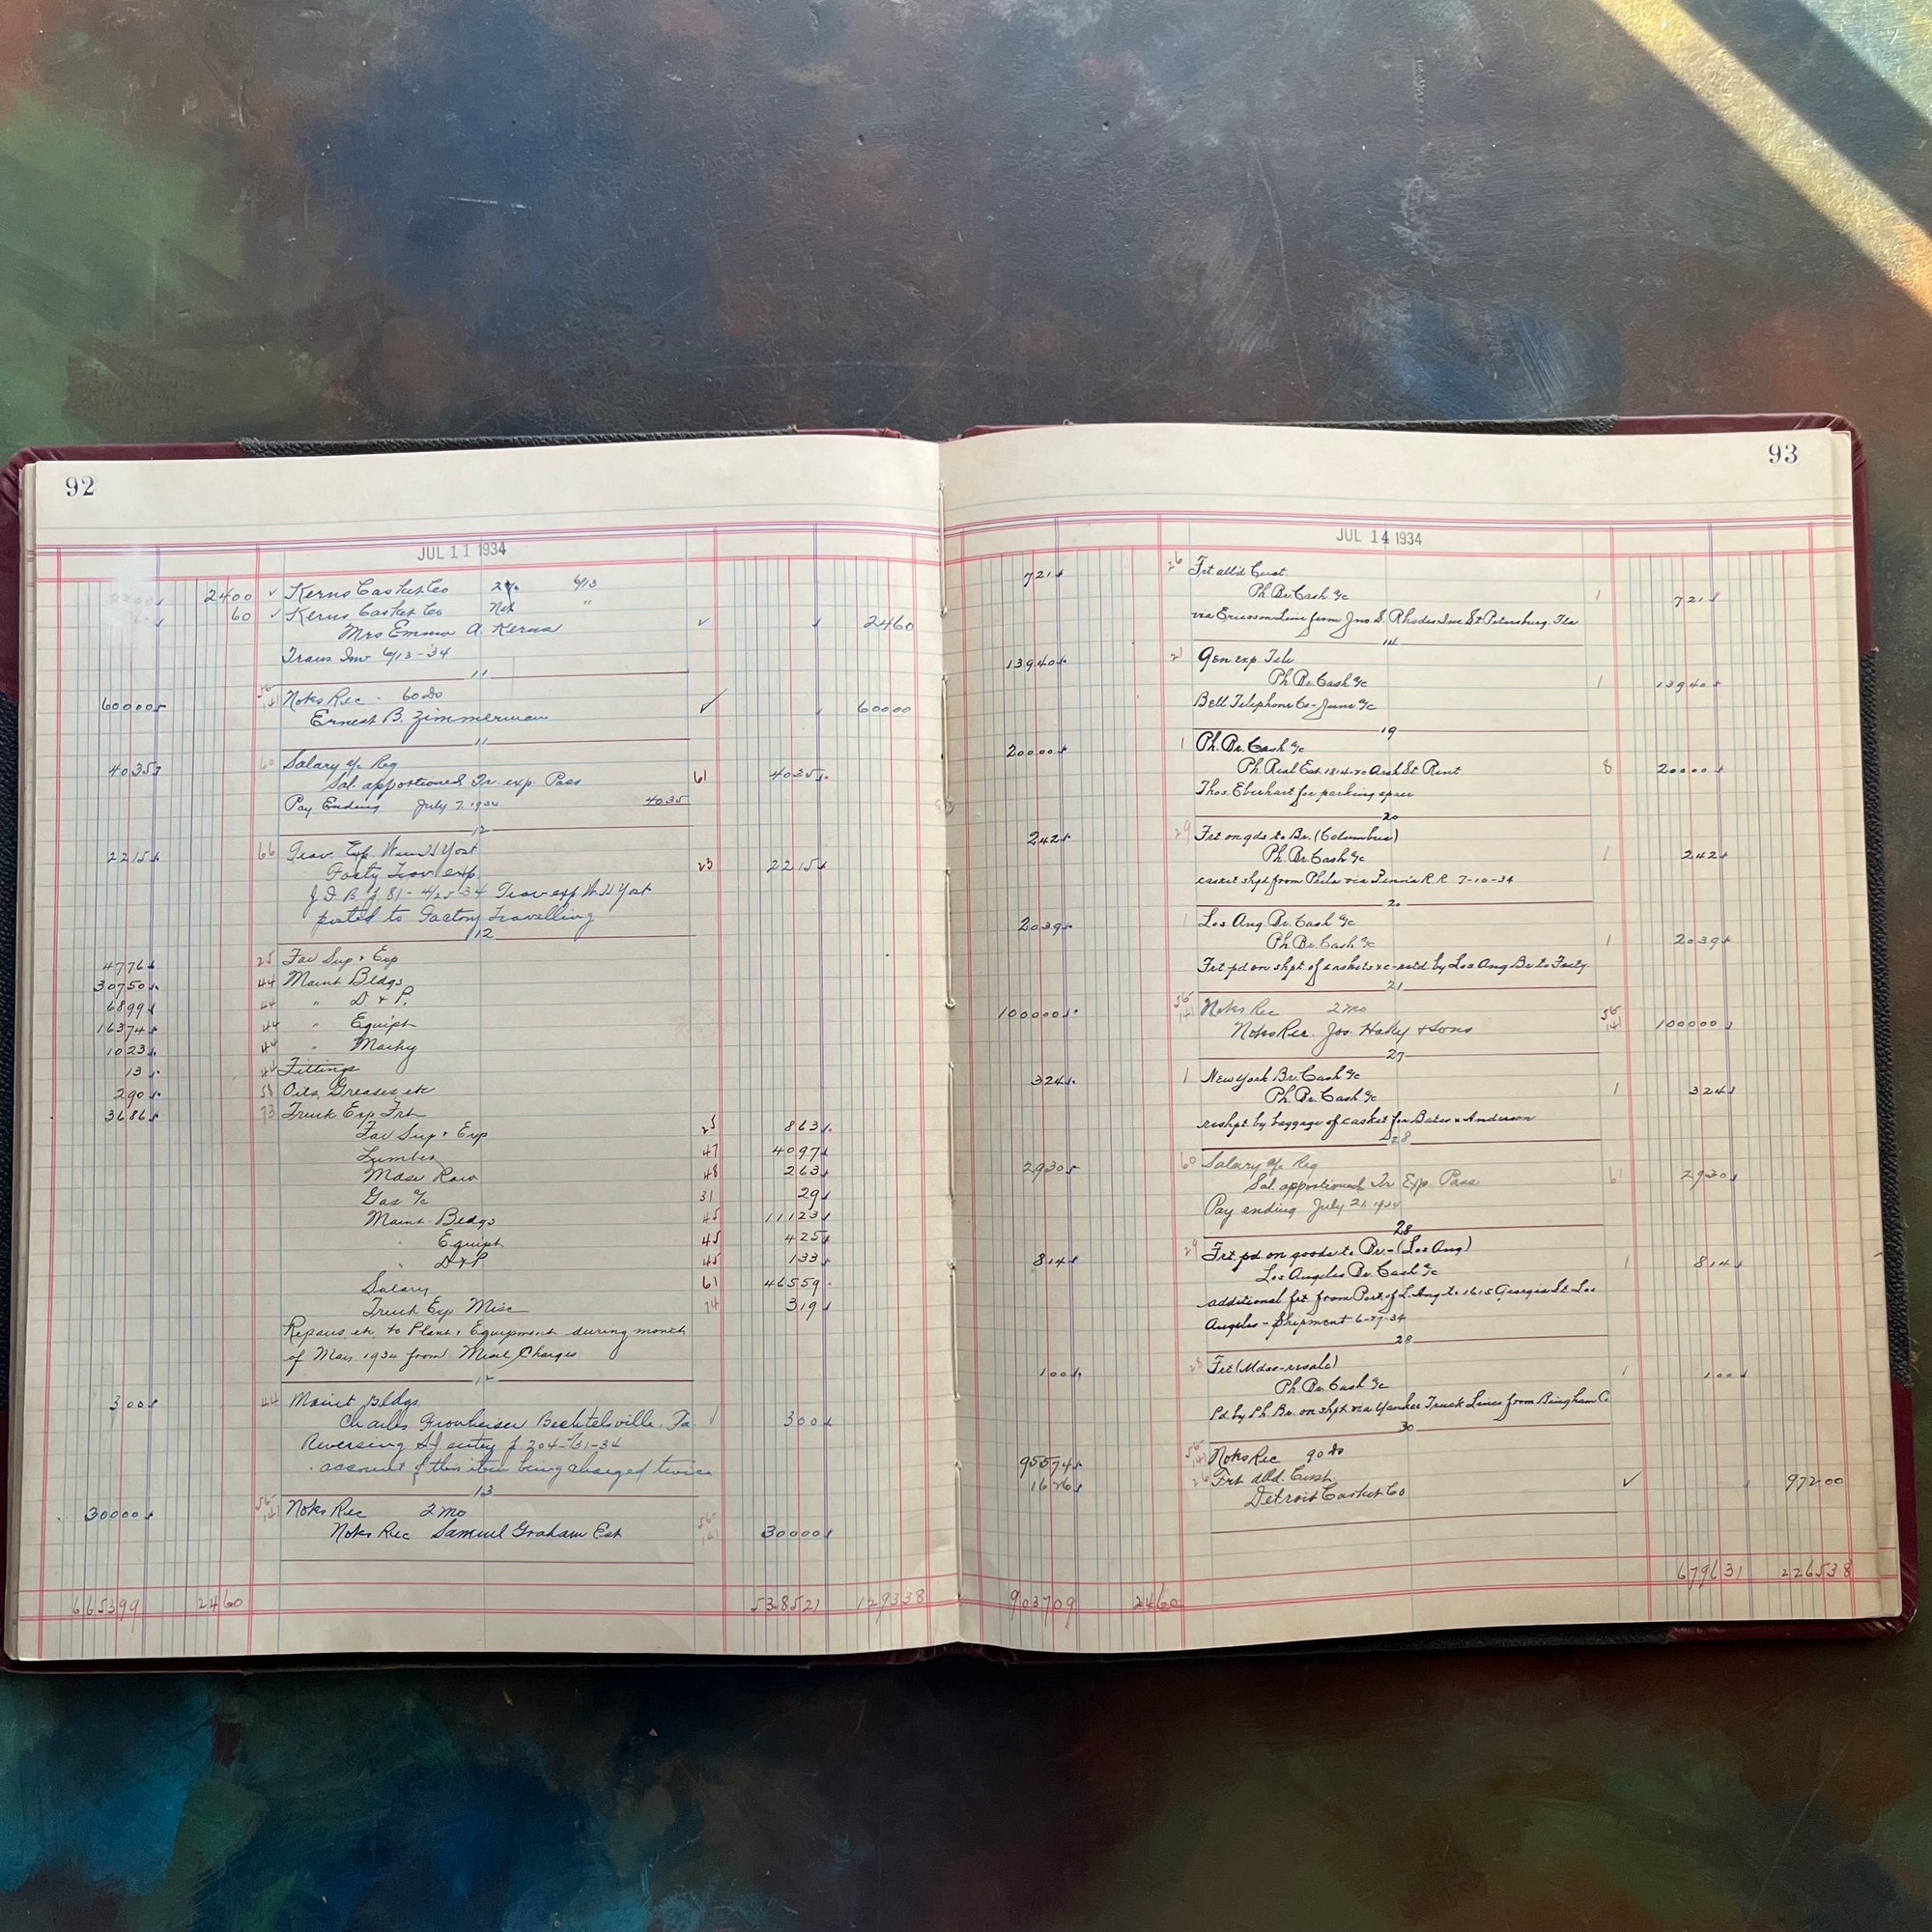 92
JUL 11 1934
2400 ✓ Kerns Casket Co 2% 6/13
60 ✓ Kerns Casket Co Net "
Mrs Emma A. Kerns ✓ 2460
Trans Inv 6/13-34
11
60000 56 141 Notes Rec. 60 ds
Ernest B. Zimmerman ✓ 60000
11
4035 60 Salary a/c Reg
Sal. apportioned Tr. exp. Pass 61 4035
Pay Ending July 7, 1934 4035
12
2215 66 Trav. Exp. Wm H Yost
Facty Trav exp. 23 2215
J.D.B. f 81 - 4/25-34 Trav exp W H Yost
posted to Factory Travelling
12
4776 25 Fav Sup & Exp
30750 44 Maint Bldgs
6899 44 " D & P.
16374 44 " Equipt
1023 44 " Machy
13 44 Fittings
290 58 Oils, Greases, etc
3686 73 Truck Exp Frt
Fav Sup & Exp 25 863
Lumber 47 4097
Mdse Raw 48 263
Gas a/c 31 29
Maint Bldgs 45 11123
" Equipt 45 425
" D & P 45 133
Salary 61 46559
Truck Exp Misc 74 319
Repairs etc to Plant & Equipment during month
of May 1934 from Miscl Charges
12
300 44 Maint Bldgs
Charles Growheiser Bechtelsville, Pa. ✓ 300
Reversing entry f. 204-
account of this item being charged twice
13
30000 56 141 Notes Rec 2 mo
Notes Rec Samuel Graham Est 56 141 30000
665399 2460 538521 129338
93
JUL 14 1934
721 26 Frt. alld Cust.
Ph. Br. Cash a/c 1 721
via Ericsson Line from Jno S. Rhodes Inc St Petersburg. Fla
14
13940 21 Gen exp. Tele
Ph. Br. Cash a/c 1 13940
Bell Telephone Co - June a/c
19
20000 1 Ph. Br. Cash a/c
Ph. Real Est. 1814-20 Arch St. Rent 8 20000
Thos. Eberhart for parking space
20
242 29 Frt on gds to Br. (Columbus)
Ph. Br. Cash a/c 1 242
casket shpt from Phila via Penn'a R.R. 7-10-34
20
2039 1 Los Ang Br. Cash a/c
Ph. Br. Cash a/c 1 2039
Frt. pd on shpt. of caskets &c - retd by Los Ang Br to Facty.
21
100000 56 141 Notes Rec 2 mo
Notes Rec. Jos. Haky & Sons 56 141 100000
27
324 1 New York Br. Cash a/c
Ph. Br. Cash a/c 1 324
reshpt by baggage of casket for Bates & Anderson
28
2930 60 Salary a/c Reg
Sal. apportioned Tr. Exp. Pass 61 2930
Pay ending July 21, 1934
28
814 29 Frt. pd on goods to Br. - (Los Ang)
Los Angeles Br. Cash a/c 1 814
additional frt. from Port of L. Ang to 1615 Georgia St. Los
Angeles - Shipment 6-27-34
28
100 28 Frt (Mdse-resale)
Ph. Br. Cash a/c 1 100
Pd. by Ph Br. on shpt via Yankee Truck Lines from Bingham Co
30
95574 56 141 Notes Rec 90 ds
1626 26 Frt alld. Cust.
Detroit Casket Co ✓ 97200
679631 226538
903709 2460